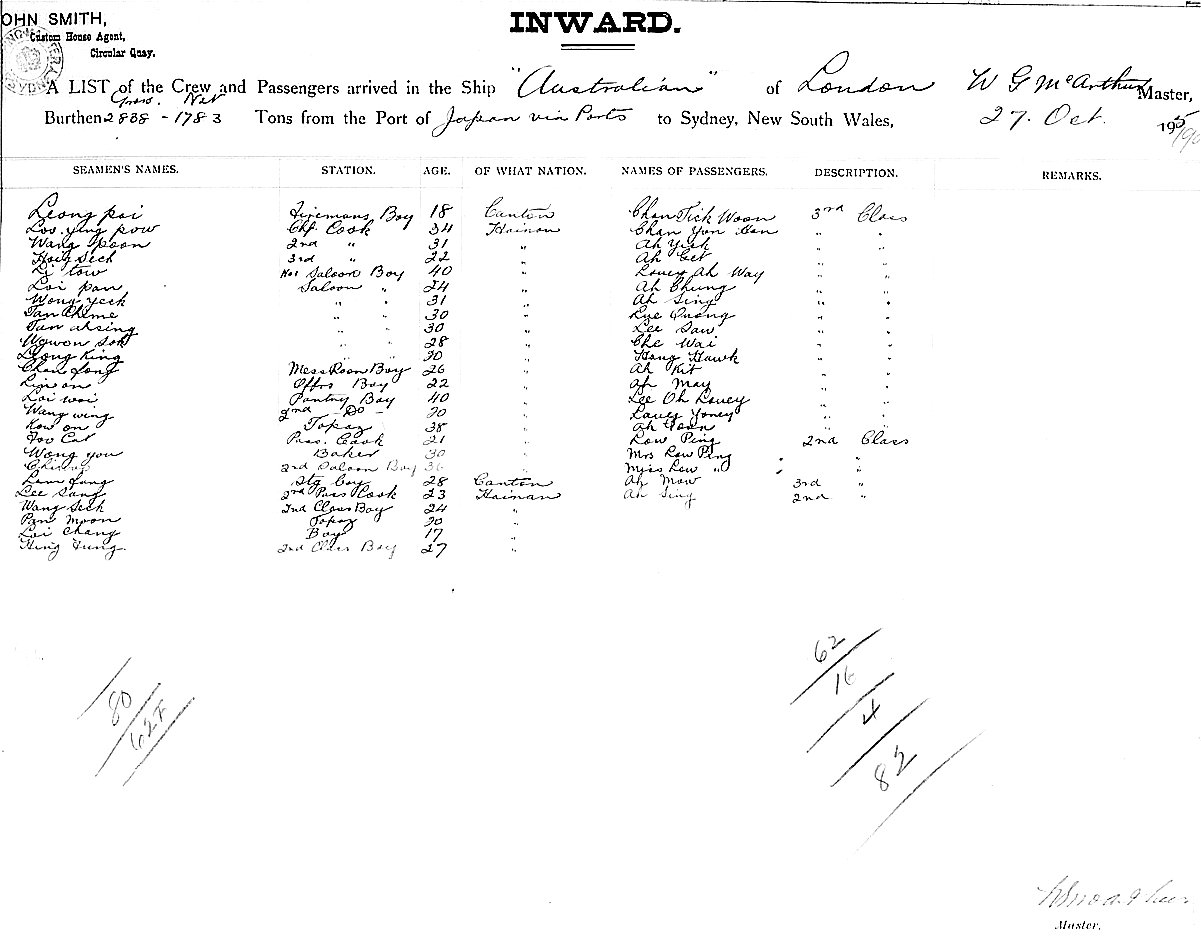 OHN SMITH,
Custom House Agent,
Circular Quay.
INWARD.
A LIST of the Crew and Passengers arrived in the Ship "Australian" of London W G McArthur Master,
Gross. Net
Burthen 2838 - 1783 Tons from the Port of Japan via Ports to Sydney, New South Wales, 27. Oct. 1905
SEAMEN'S NAMES. STATION. AGE. OF WHAT NATION. NAMES OF PASSENGERS. DESCRIPTION. REMARKS.
Leong pai Firemans Boy 18 Canton Chan Tick Woon 3rd Class
Loo ying pow Chf. Cook 34 Hainan Chan Yon " "
Wang Spoon 2nd " 31 " Ah Yick " "
Hoig Sech 3rd " 22 " Ah Get " "
Li tow No1 Saloon Boy 40 " Louey Ah Way " "
Loi pan Saloon " 24 " Ah Chung " "
Wong yeck " " 31 " Ah Sing " "
Tan Chime " " 30 " Lue Quong " "
Tan ah sing " " 30 " Lee Saw " "
Wawon Sok " " 28 " Che Wai " "
Lyong King " " 20 " Hong Hawk " "
Chan fong Mess Room Boy 26 " Ah Kit " "
Offrs Boy 22 " Ah May " "
Loi wai Pantry Boy 40 " Lee Oh Louey " "
Wang wing 2nd - Do - 20 " Louey Yoney " "
Kow on Topaz 38 " Ah Foon " "
Foo Cat Pass. Cook 21 " Low Ping 2nd Class
Wong you Baker 30 " Mrs Low Ping " "
2nd Saloon Boy 36 " Miss Low " " "
Lam fung Stg Boy 28 Canton Ah Mow 3rd "
Lee Sang 2nd Pass Cook 23 Hainan Ah Sing 2nd "
Wang Sech 2nd Class Boy 24 "
Pan Moon Topaz 20 "
Loi Chang Boy 17 "
Hing Fung 2nd Class Boy 27 "
80
62
62
16
4
82
Master.